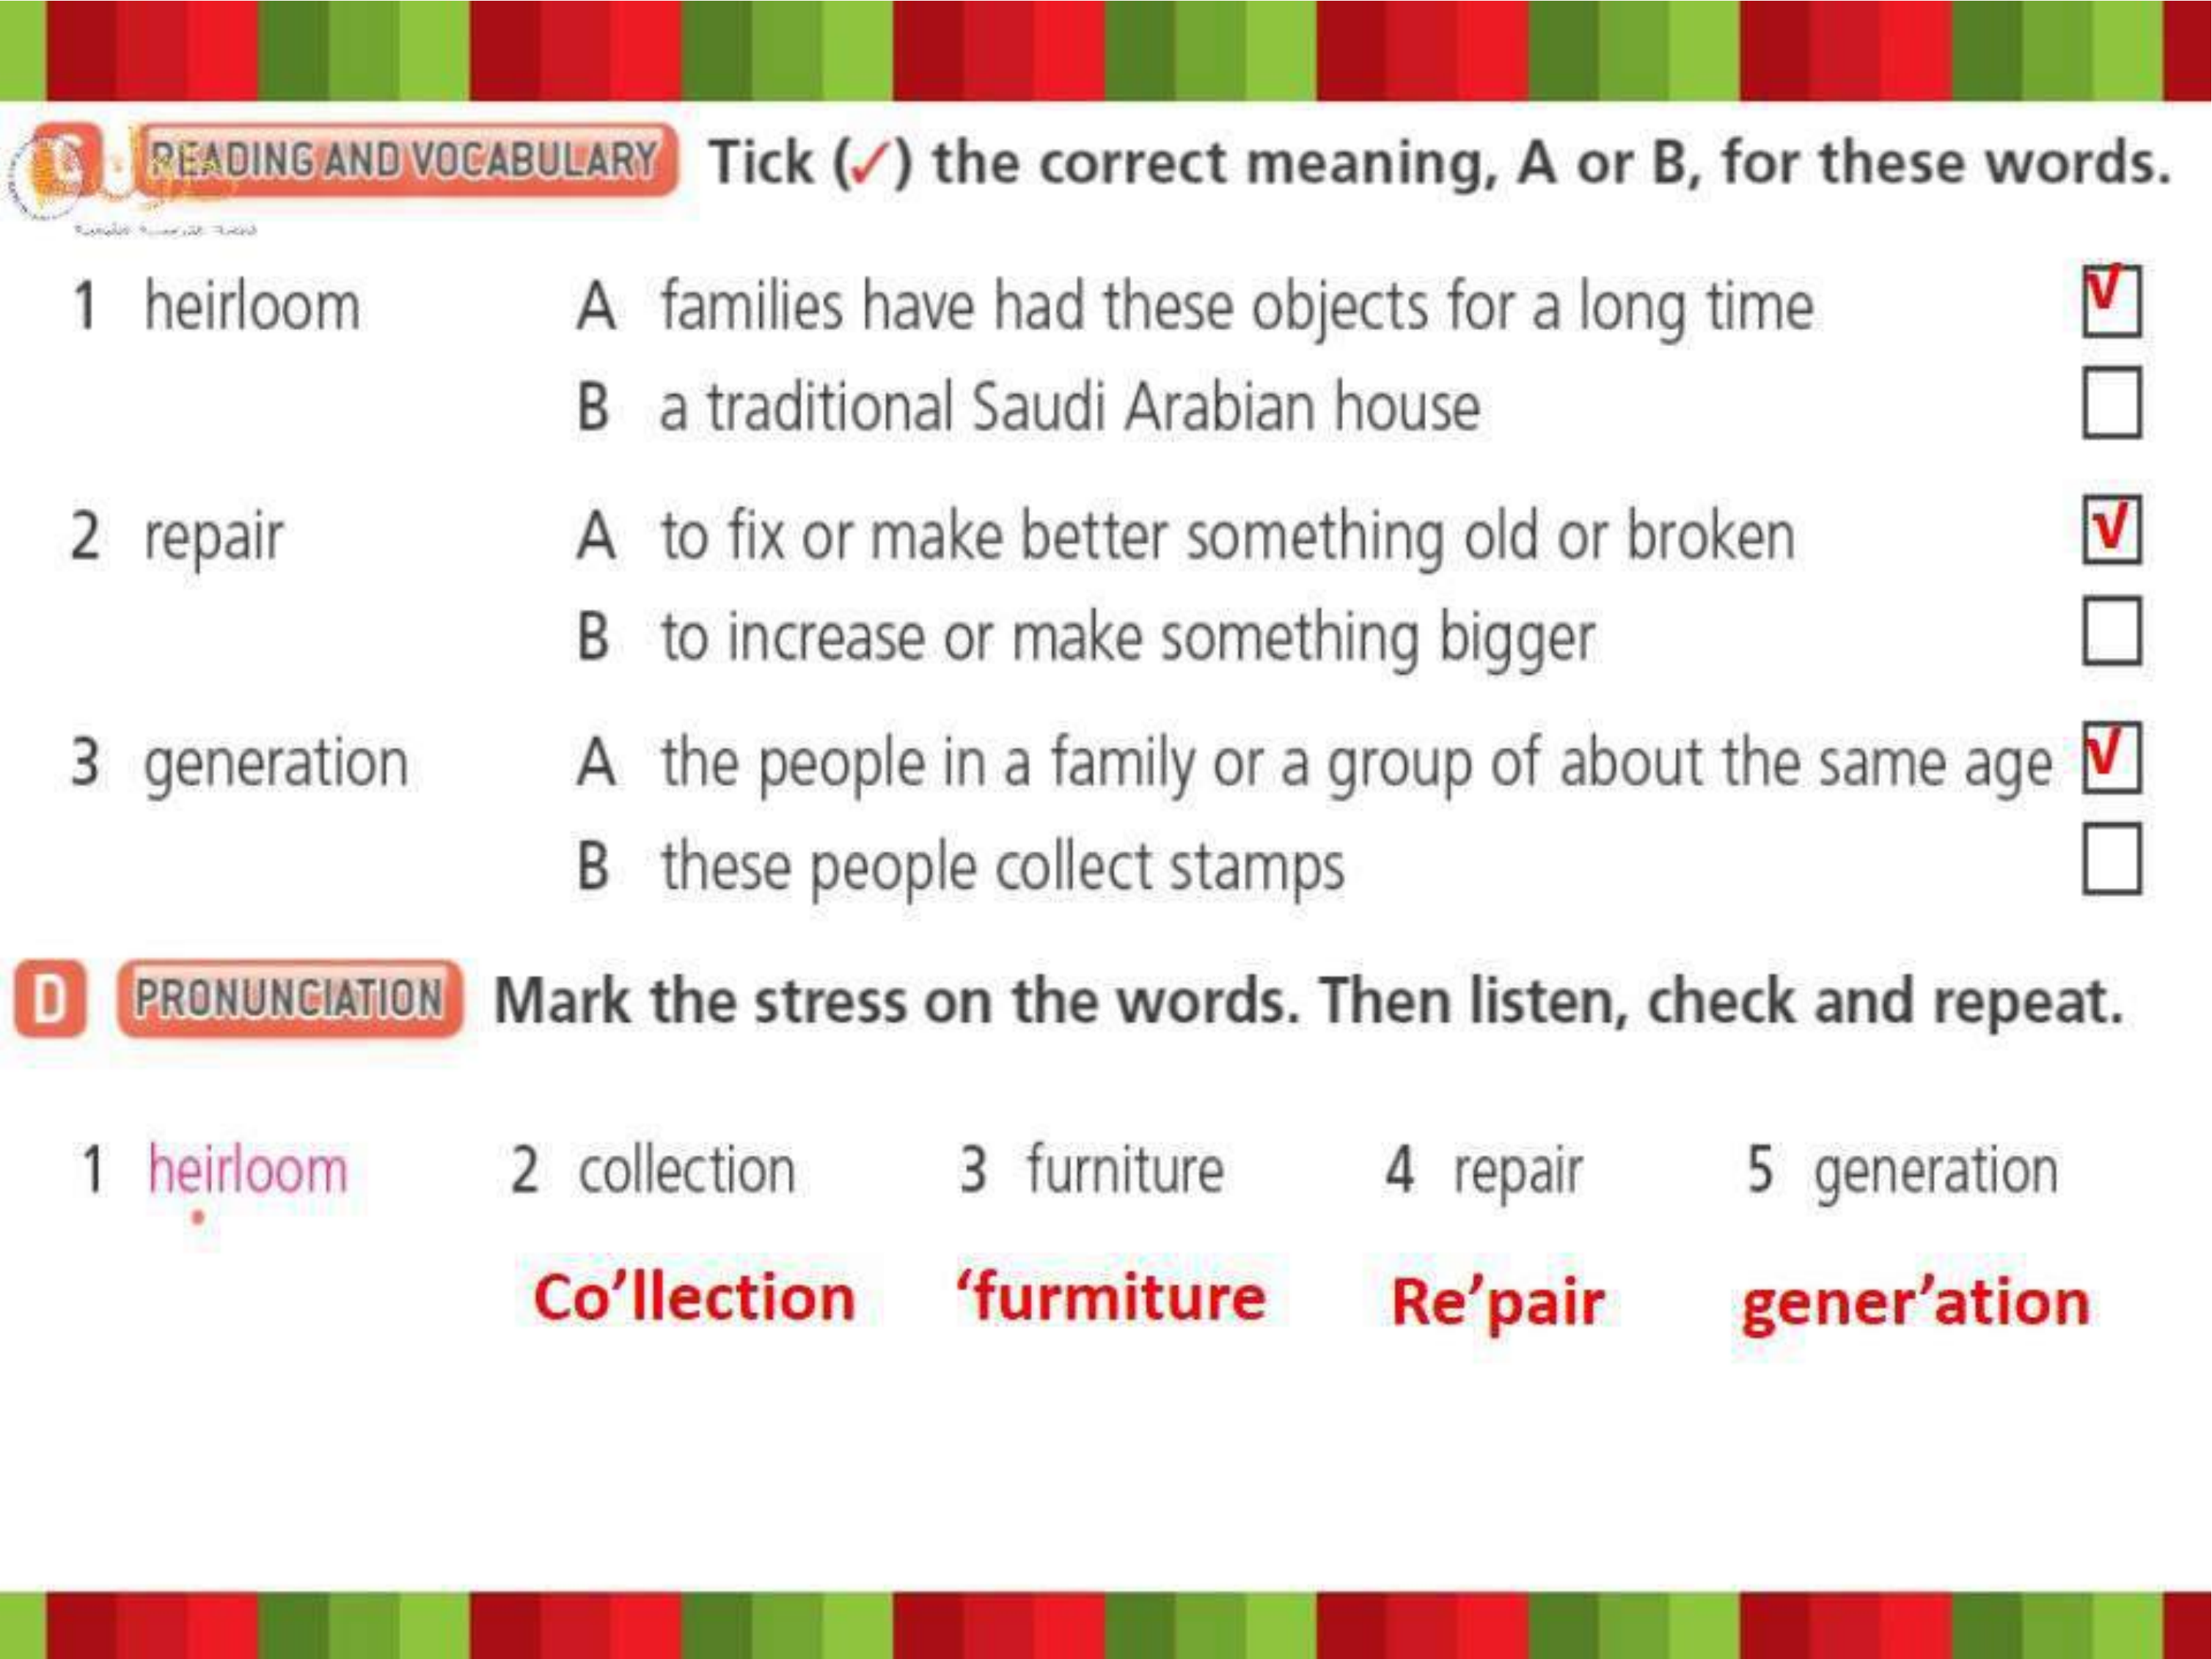 READING AND VOCABULARY Tick (✓) the correct meaning, A or B, for these words.
1 heirloom A families have had these objects for a long time √
B a traditional Saudi Arabian house
2 repair A to fix or make better something old or broken √
B to increase or make something bigger
3 generation A the people in a family or a group of about the same age √
B these people collect stamps
D PRONUNCIATION Mark the stress on the words. Then listen, check and repeat.
1 heirloom 2 collection 3 furniture 4 repair 5 generation
Co’llection ‘furmiture Re’pair gener’ation